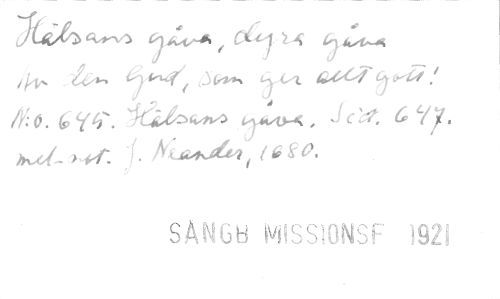 Hälsans gåva, dyra gåva
Av den Gud, som ger allt gott!
N:o. 645. Hälsans gåva. Sid. 647.
mel-not. J. Neander, 1680.
SÅNGB MISSIONSF 1921